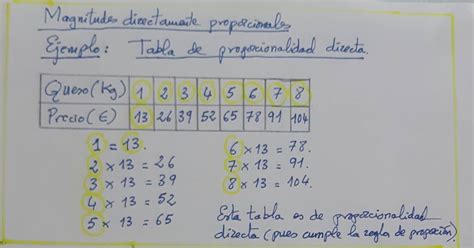 Magnitudes directamente proporcionales
Ejemplo: Tabla de proporcionalidad directa.
Queso (Kg) 1 2 3 4 5 6 7 8
Precio (€) 13 26 39 52 65 78 91 104
1 = 13.
2 × 13 = 26
3 × 13 = 39
4 × 13 = 52
5 × 13 = 65
6 × 13 = 78.
7 × 13 = 91.
8 × 13 = 104.
Esta tabla es de proporcionalidad
directa (pues cumple la regla de proporción)